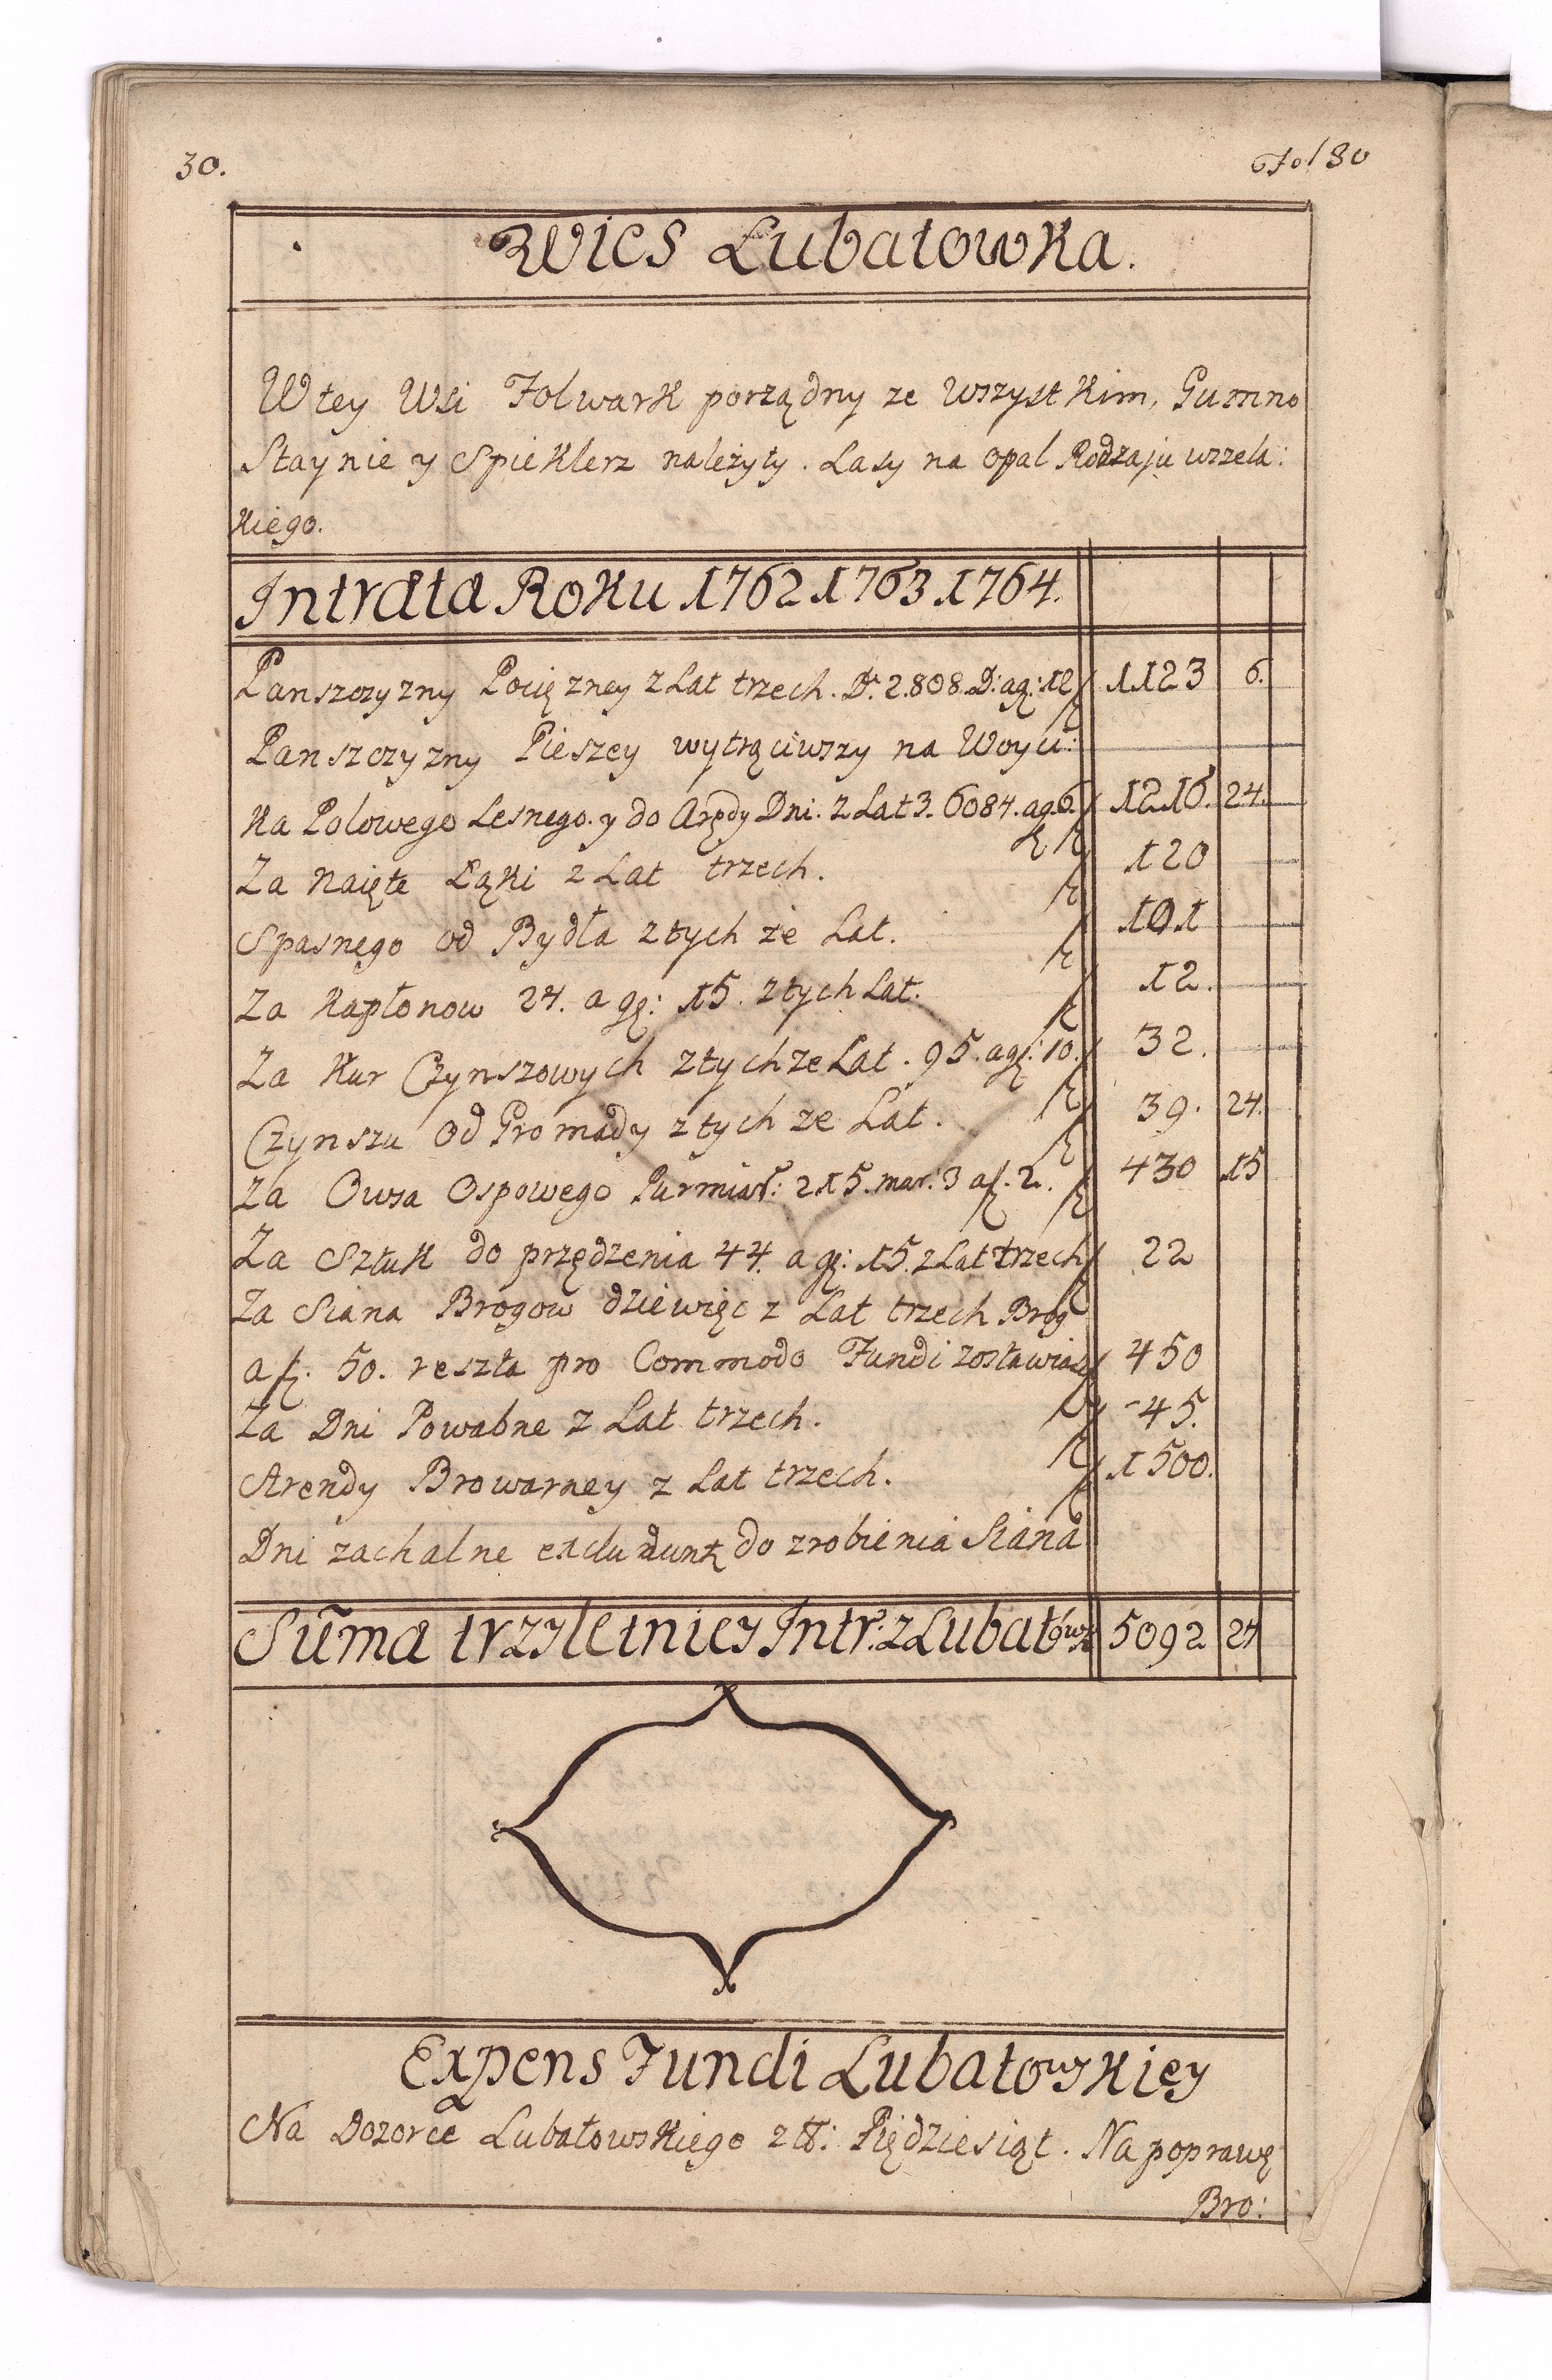 30.
Fol 30
Wies Lubatowka.
W tey Wsi Folwark porządny ze wszystkim, Gumno
Staynie y Spieklerz należyty. Lasy na opal Rodzaju wszela:
kiego.
Intrata Roku 1762 1763 1764.
Panszczyzny Pociężney z Lat trzech. D: 2.808. D: a gę: 12 1123 6.
Panszczyzny Pieszey wytrąciwszy na Woyci:
ka Polowego Lesnego. y do Arędy Dni. z Lat 3. 6084. a g. 6. 1216. 24.
Za Naięte Łąki z Lat trzech. 120
Spasnego od Bydła z tych że Lat. 101
Za Kapłonow 24. a gę: 15. z tych Lat. 12.
Za Kur Czynszowych z tych ze Lat. 95. a gę: 10. 32.
Czynszu od Gromady z tych ze Lat. 39. 24.
Za Owsa Ospowego Purmiar: 215. mar: 3 a f. 2. 430 15
Za Sztuk do przędzenia 44. a gę: 15. z Lat trzech 22
Za Siana Brogow dziewięc z Lat trzech Brog
a f. 50. reszta pro Commodo Fundi zostawiaiąc 450
Za Dni Powabne z Lat trzech. 45.
Arendy Browarney z Lat trzech. 1500.
Dni zachalne do zrobienia Siana
Sum̃a trzyletniey Intr: z Lubatowz 5092 24
Expens Fundi Lubatowskiey
Na Dozorce Lubatowskiego zł: Piędziesiąt. Na poprawę
Bro: